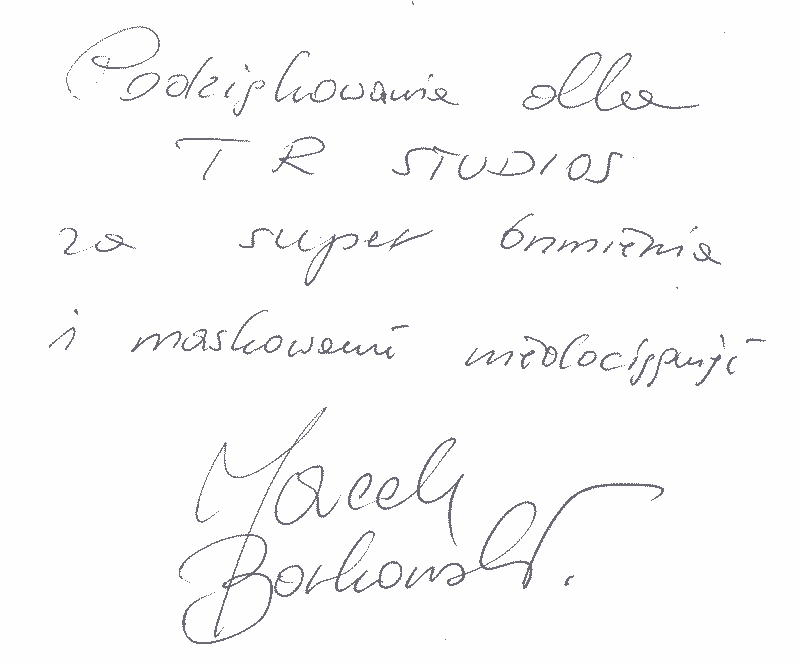 Podziękowania dla
TR STUDIOS
za super brzmienia
i maskowanie niedociągnięć
Jacek
Borkowski.